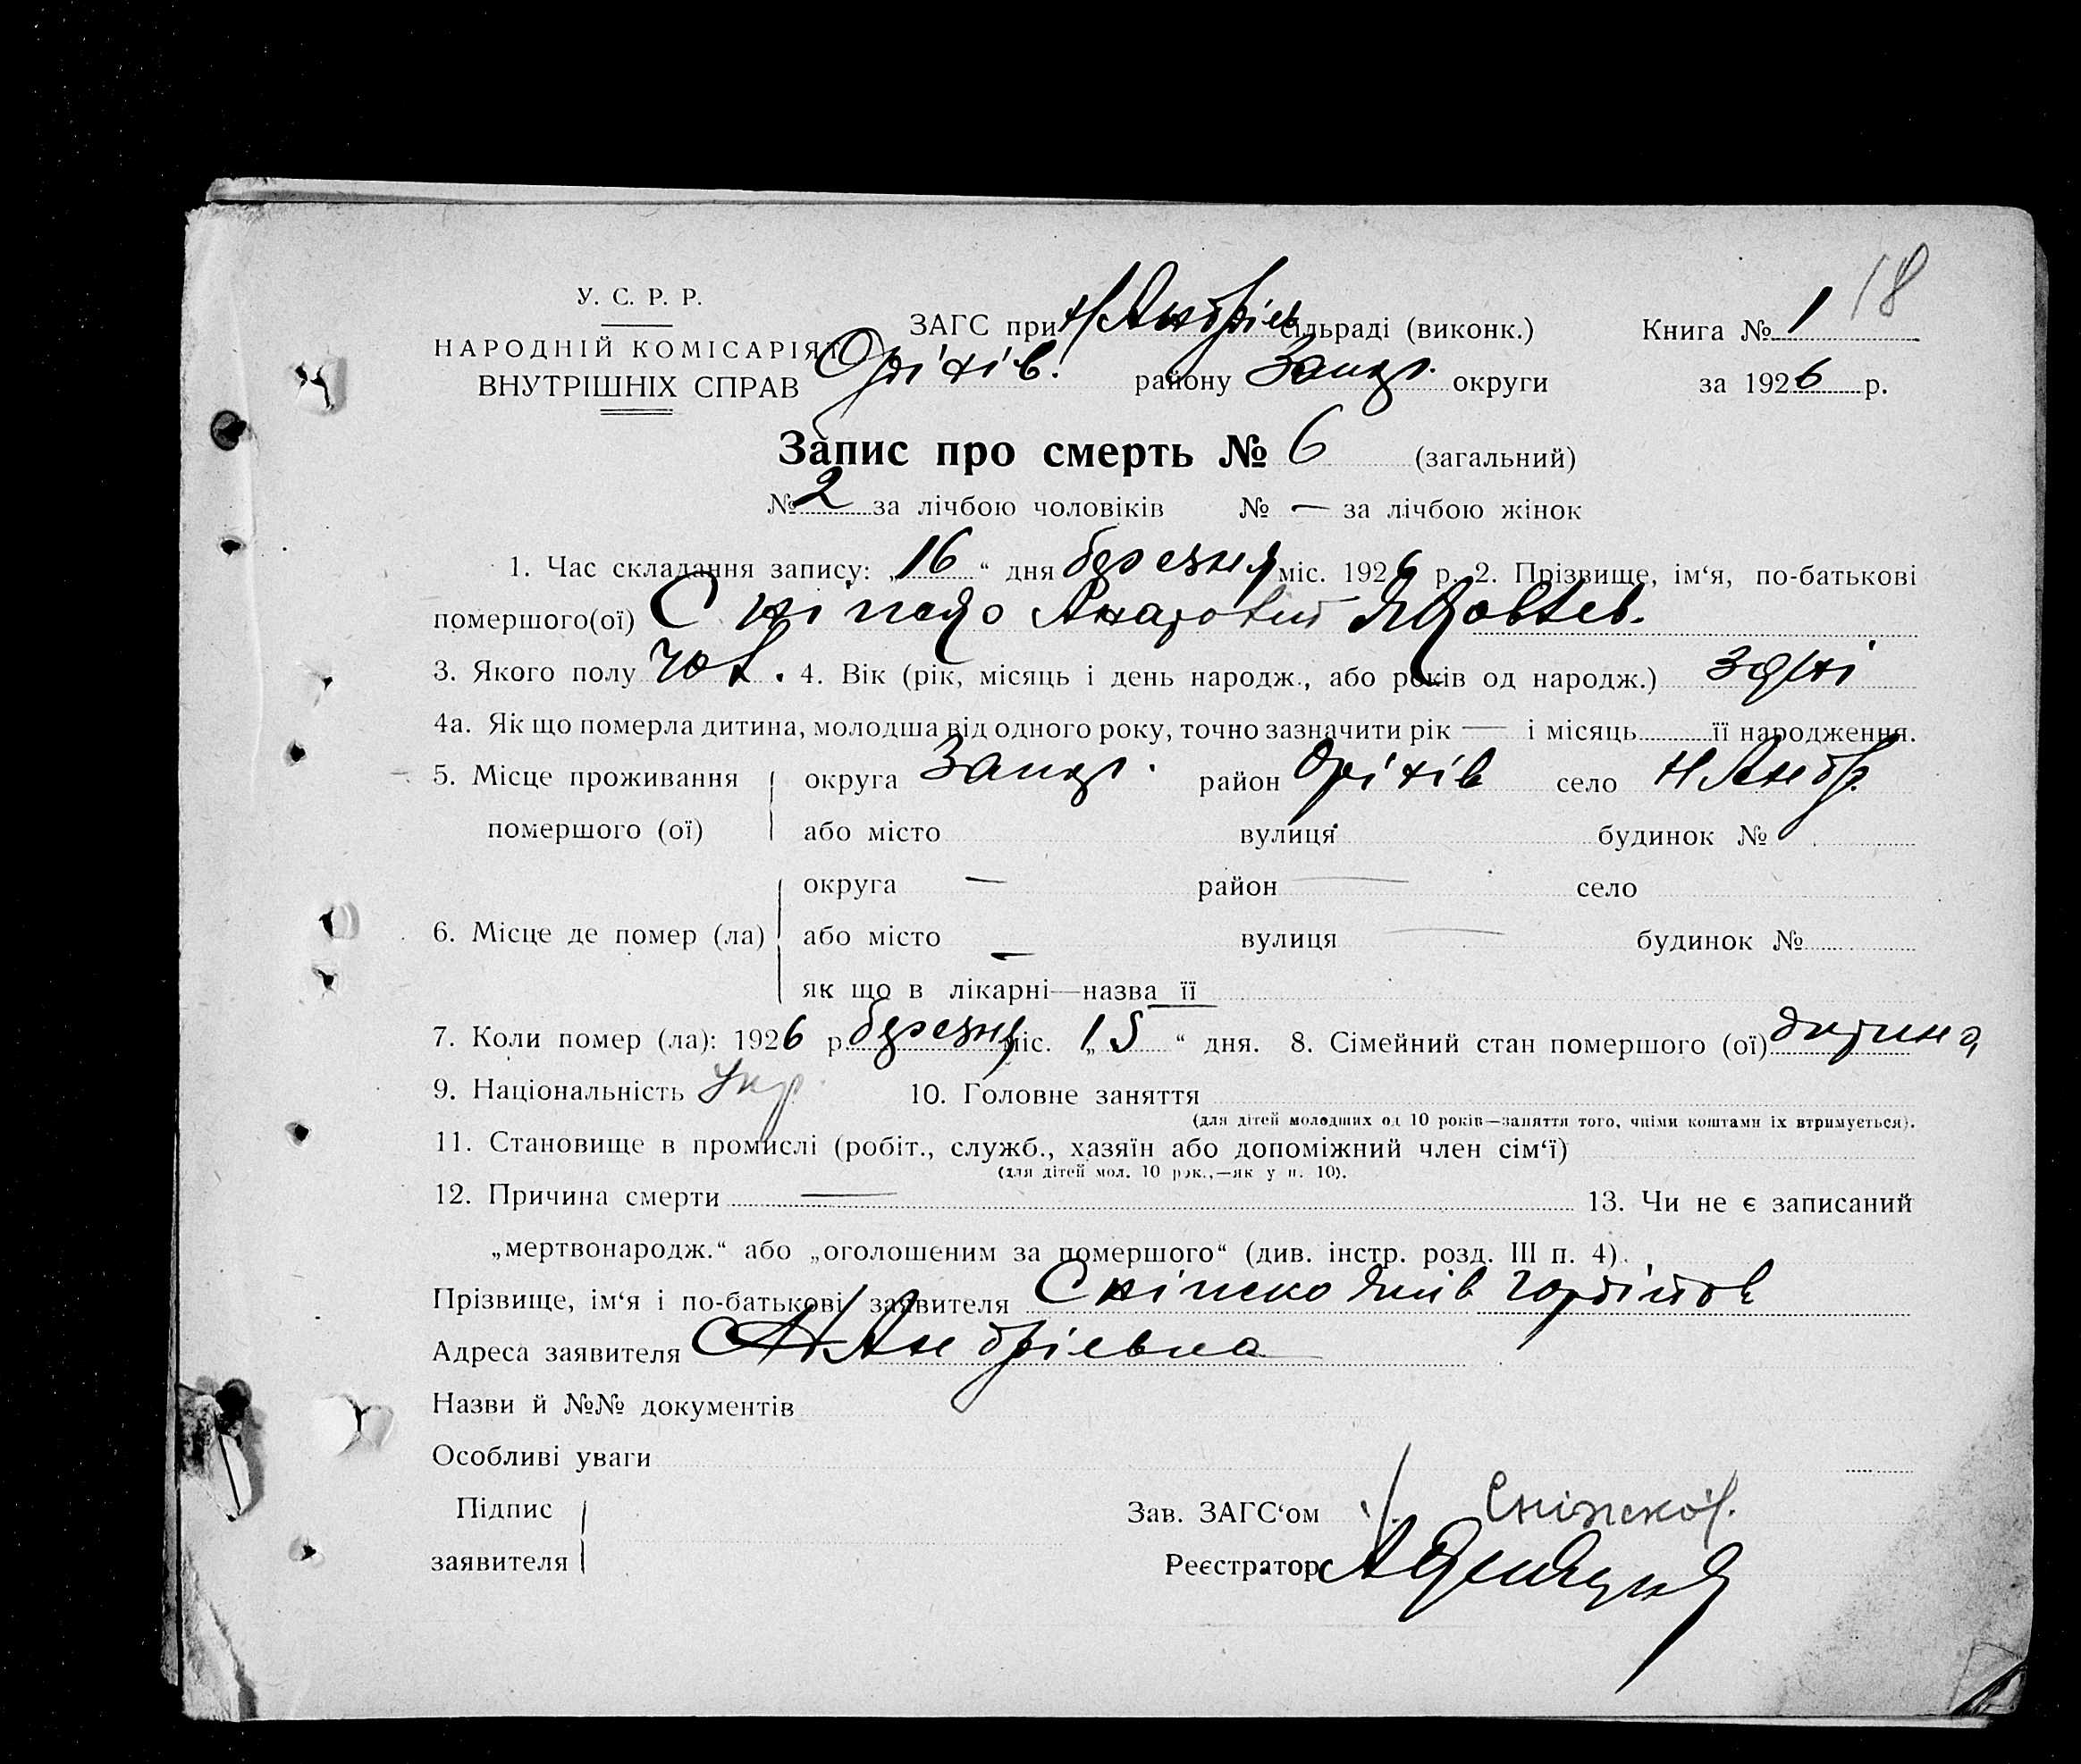 18
У. С. Р. Р.
НАРОДНІЙ КОМІСАРІЯТ
ВНУТРІШНІХ СПРАВ
ЗАГС при Н Андрієв сільраді (виконк.) Книга № 1
Оріхів. району Запор. округи за 1926 р.
Запис про смерть № 6 (загальний)
№ 2 за лічбою чоловіків № — за лічбою жінок
1. Час складання запису: „16“ дня березня міс. 1926 р. 2. Прізвище, ім‘я, по-батькові
помершого(ої) Скіпско Яковлев.
3. Якого полу чол. 4. Вік (рік, місяць і день народж., або років од народж.) 3 дні
4а. Як що померла дитина, молодша від одного року, точно зазначити рік — і місяць її народження.
5. Місце проживання помершого (ої) округа Запор. район Оріхів село Н Андр.
або місто вулиця будинок №
6. Місце де помер (ла) округа — район — село
або місто — вулиця — будинок №
як що в лікарні—назва її
7. Коли помер (ла): 1926 р. березня міс. „15“ дня. 8. Сімейний стан помершого (ої) дитина
9. Національність Укр. 10. Головне заняття
(для дітей молодших од 10 років—заняття того, чиїми коштами їх втримується).
11. Становище в промислі (робіт., служб., хазяїн або допоміжний член сім‘ї)
(для дітей мол. 10 рок.,—як у п. 10).
12. Причина смерти — 13. Чи не є записаний
„мертвонародж.“ або „оголошеним за помершого“ (див. інстр. розд. III п. 4).
Прізвище, ім‘я і по-батькові заявителя Скіпско Яків Гордійов
Адреса заявителя с Н Андрієвка
Назви й №№ документів
Особливі уваги
Підпис заявителя
Зав. ЗАГС‘ом Скіпско
Реєстратор